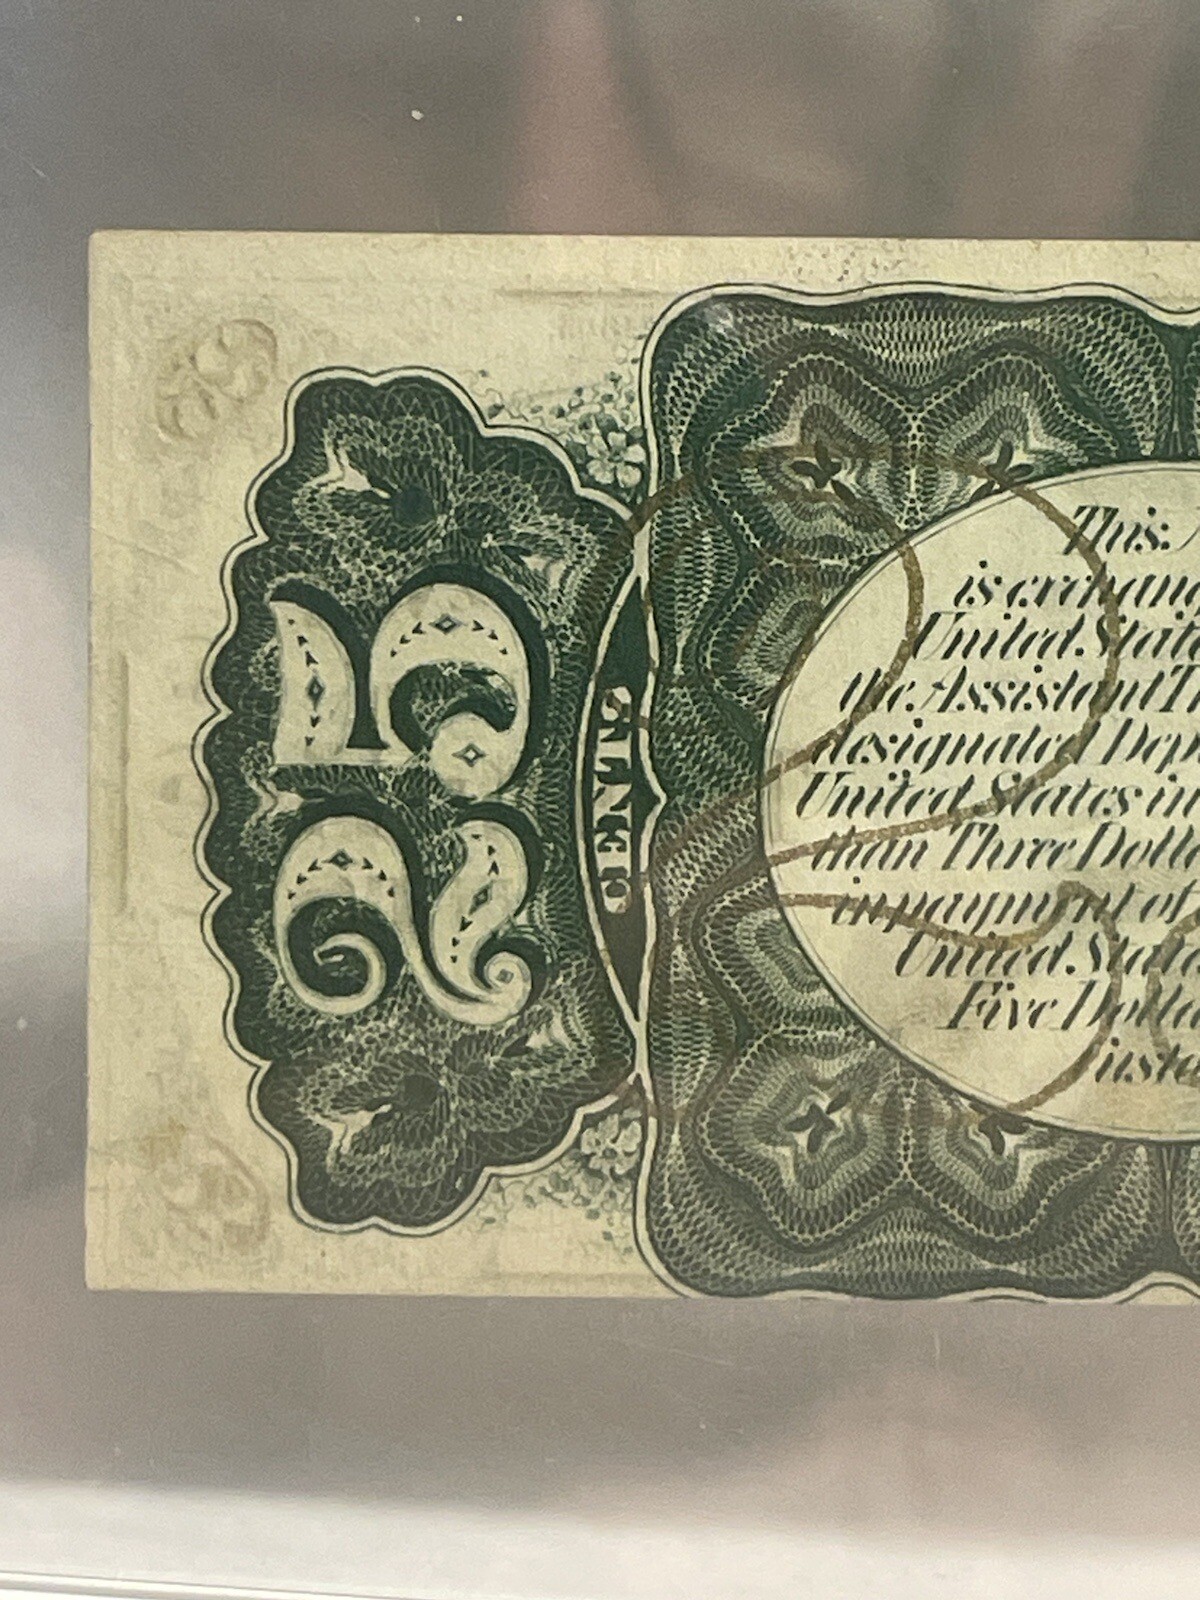 25
CENTS
This
is exchang
United State
the Assistant T
designated Dep
United States in
than Three Dolla
in payment of
United State
Five Dolla